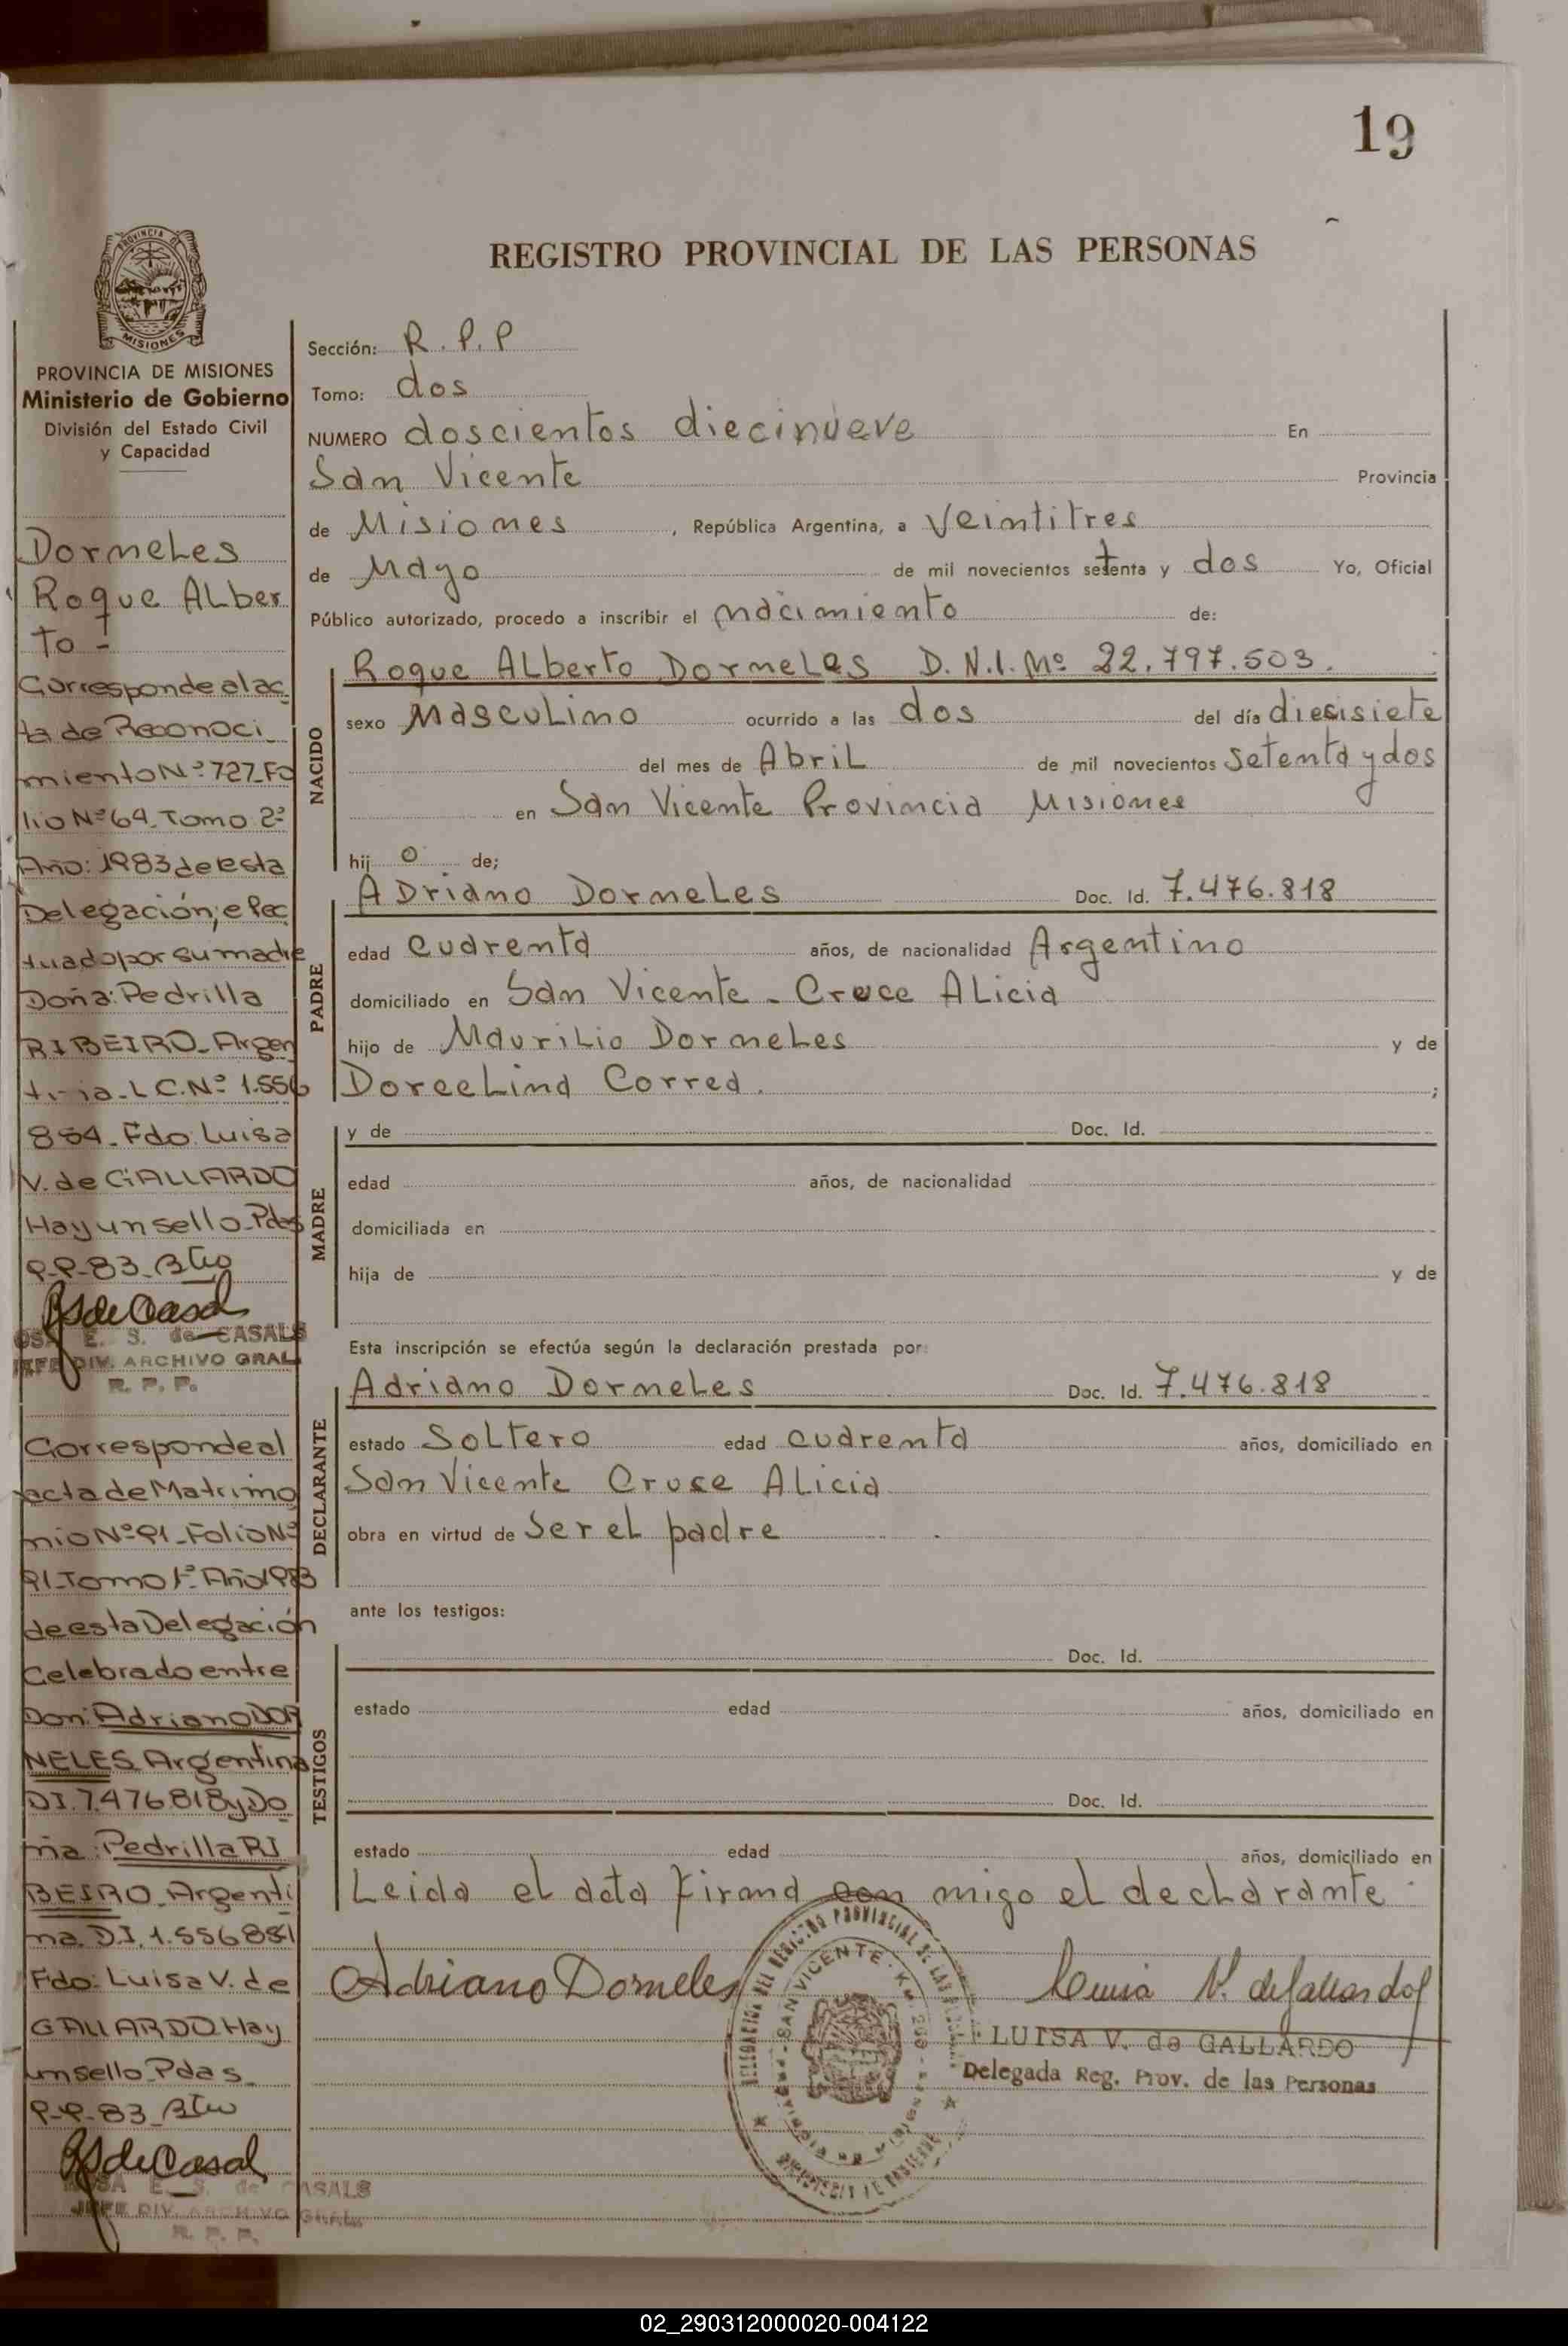 19
REGISTRO PROVINCIAL DE LAS PERSONAS
PROVINCIA DE MISIONES
Ministerio de Gobierno
División del Estado Civil
y Capacidad
Dorneles
Roque Alber
to -
Corresponde al ac
ta de Reconoci
miento Nº 727 Fo
lio Nº 64 Tomo 2º
Año: 1983 de esta
Delegación; efec
tuado por su madre
Doña: Pedrilla
RIBEIRO Argen
tina L C. Nº 1.556
884 Fdo: Luisa
V. de GALLARDO
Hay un sello Pdas
9-9-83
ROSA E. S. de CASALS
JEFE DIV. ARCHIVO GRAL
R. P. P.
Corresponde al
acta de Matrimo
nio Nº 91 Folio Nº
91 Tomo 1º Año 1983
de esta Delegación
Celebrado entre
Don: Adriano DOR
NELES Argentina
DI. 7.476.818 y Do
ña: Pedrilla RI
BEIRO Argenti
na. DI. 1.556884
Fdo: Luisa V. de
GALLARDO Hay
un sello Pdas.
9-9-83
ROSA E. S. de CASALS
JEFE DIV. ARCHIVO GRAL.
R. P. P.
Sección: R. P. P
Tomo: dos
NUMERO doscientos diecinueve En
San Vicente Provincia
de Misiones, República Argentina, a Veintitres
de Mayo de mil novecientos setenta y dos Yo, Oficial
Público autorizado, procedo a inscribir el nacimiento de:
NACIDO
Roque Alberto Dorneles D.N.I. Nº 22.797.503.
sexo Masculino ocurrido a las dos del día diecisiete
del mes de Abril de mil novecientos setenta y dos
en San Vicente Provincia Misiones
hij o de;
PADRE
Adriano Dorneles Doc. Id. 7.476.818
edad cuarenta años, de nacionalidad Argentino
domiciliado en San Vicente - Cruce Alicia
hijo de Maurilio Dorneles y de
Dorcelina Correa. ;
MADRE
y de Doc. Id.
edad años, de nacionalidad
domiciliada en
hija de y de
Esta inscripción se efectúa según la declaración prestada por:
DECLARANTE
Adriano Dorneles Doc. Id. 7.476.818
estado Soltero edad cuarenta años, domiciliado en
San Vicente Cruce Alicia
obra en virtud de Ser el padre
ante los testigos:
TESTIGOS
Doc. Id.
estado edad años, domiciliado en
Doc. Id.
estado edad años, domiciliado en
Leida el acta firma con migo el declarante.
Adriano Dorneles
Luisa V. de Gallardo
LUISA V. de GALLARDO
Delegada Reg. Prov. de las Personas
02_290312000020-004122